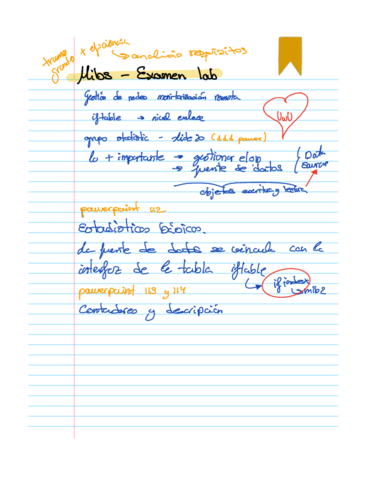 trampa + eficiencia
grande → analisis requisitos
Mibs - Examen lab
gestión de redes monitorización remota
iftable → nivel enlace
grupo statistic - slide 20 (ddd power)
lo + importante → gestionar elojo
→ fuente de datos
Data
Source
objetos escritura y lectura
powerpoint 112
Estadísticos básicos.
la fuente de datos se vincula con la
interfaz de la tabla iftable
if index
→ mib2
powerpoint 113 y 114
Contadores y descripción